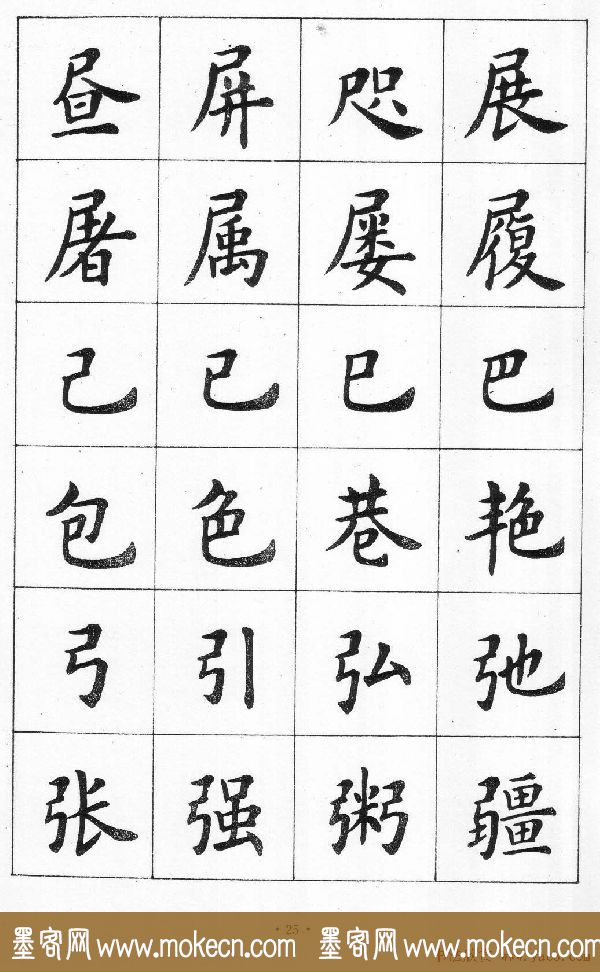 昼 屏 咫 展
屠 属 屡 履
己 已 巳 巴
包 色 巷 艳
弓 引 弘 弛
张 强 粥 疆
· 25 ·
墨客网 www.mokecn.com 墨客网 www.mokecn.com